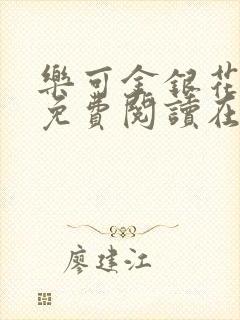 樂可金銀花
免費閱讀在
廖建江